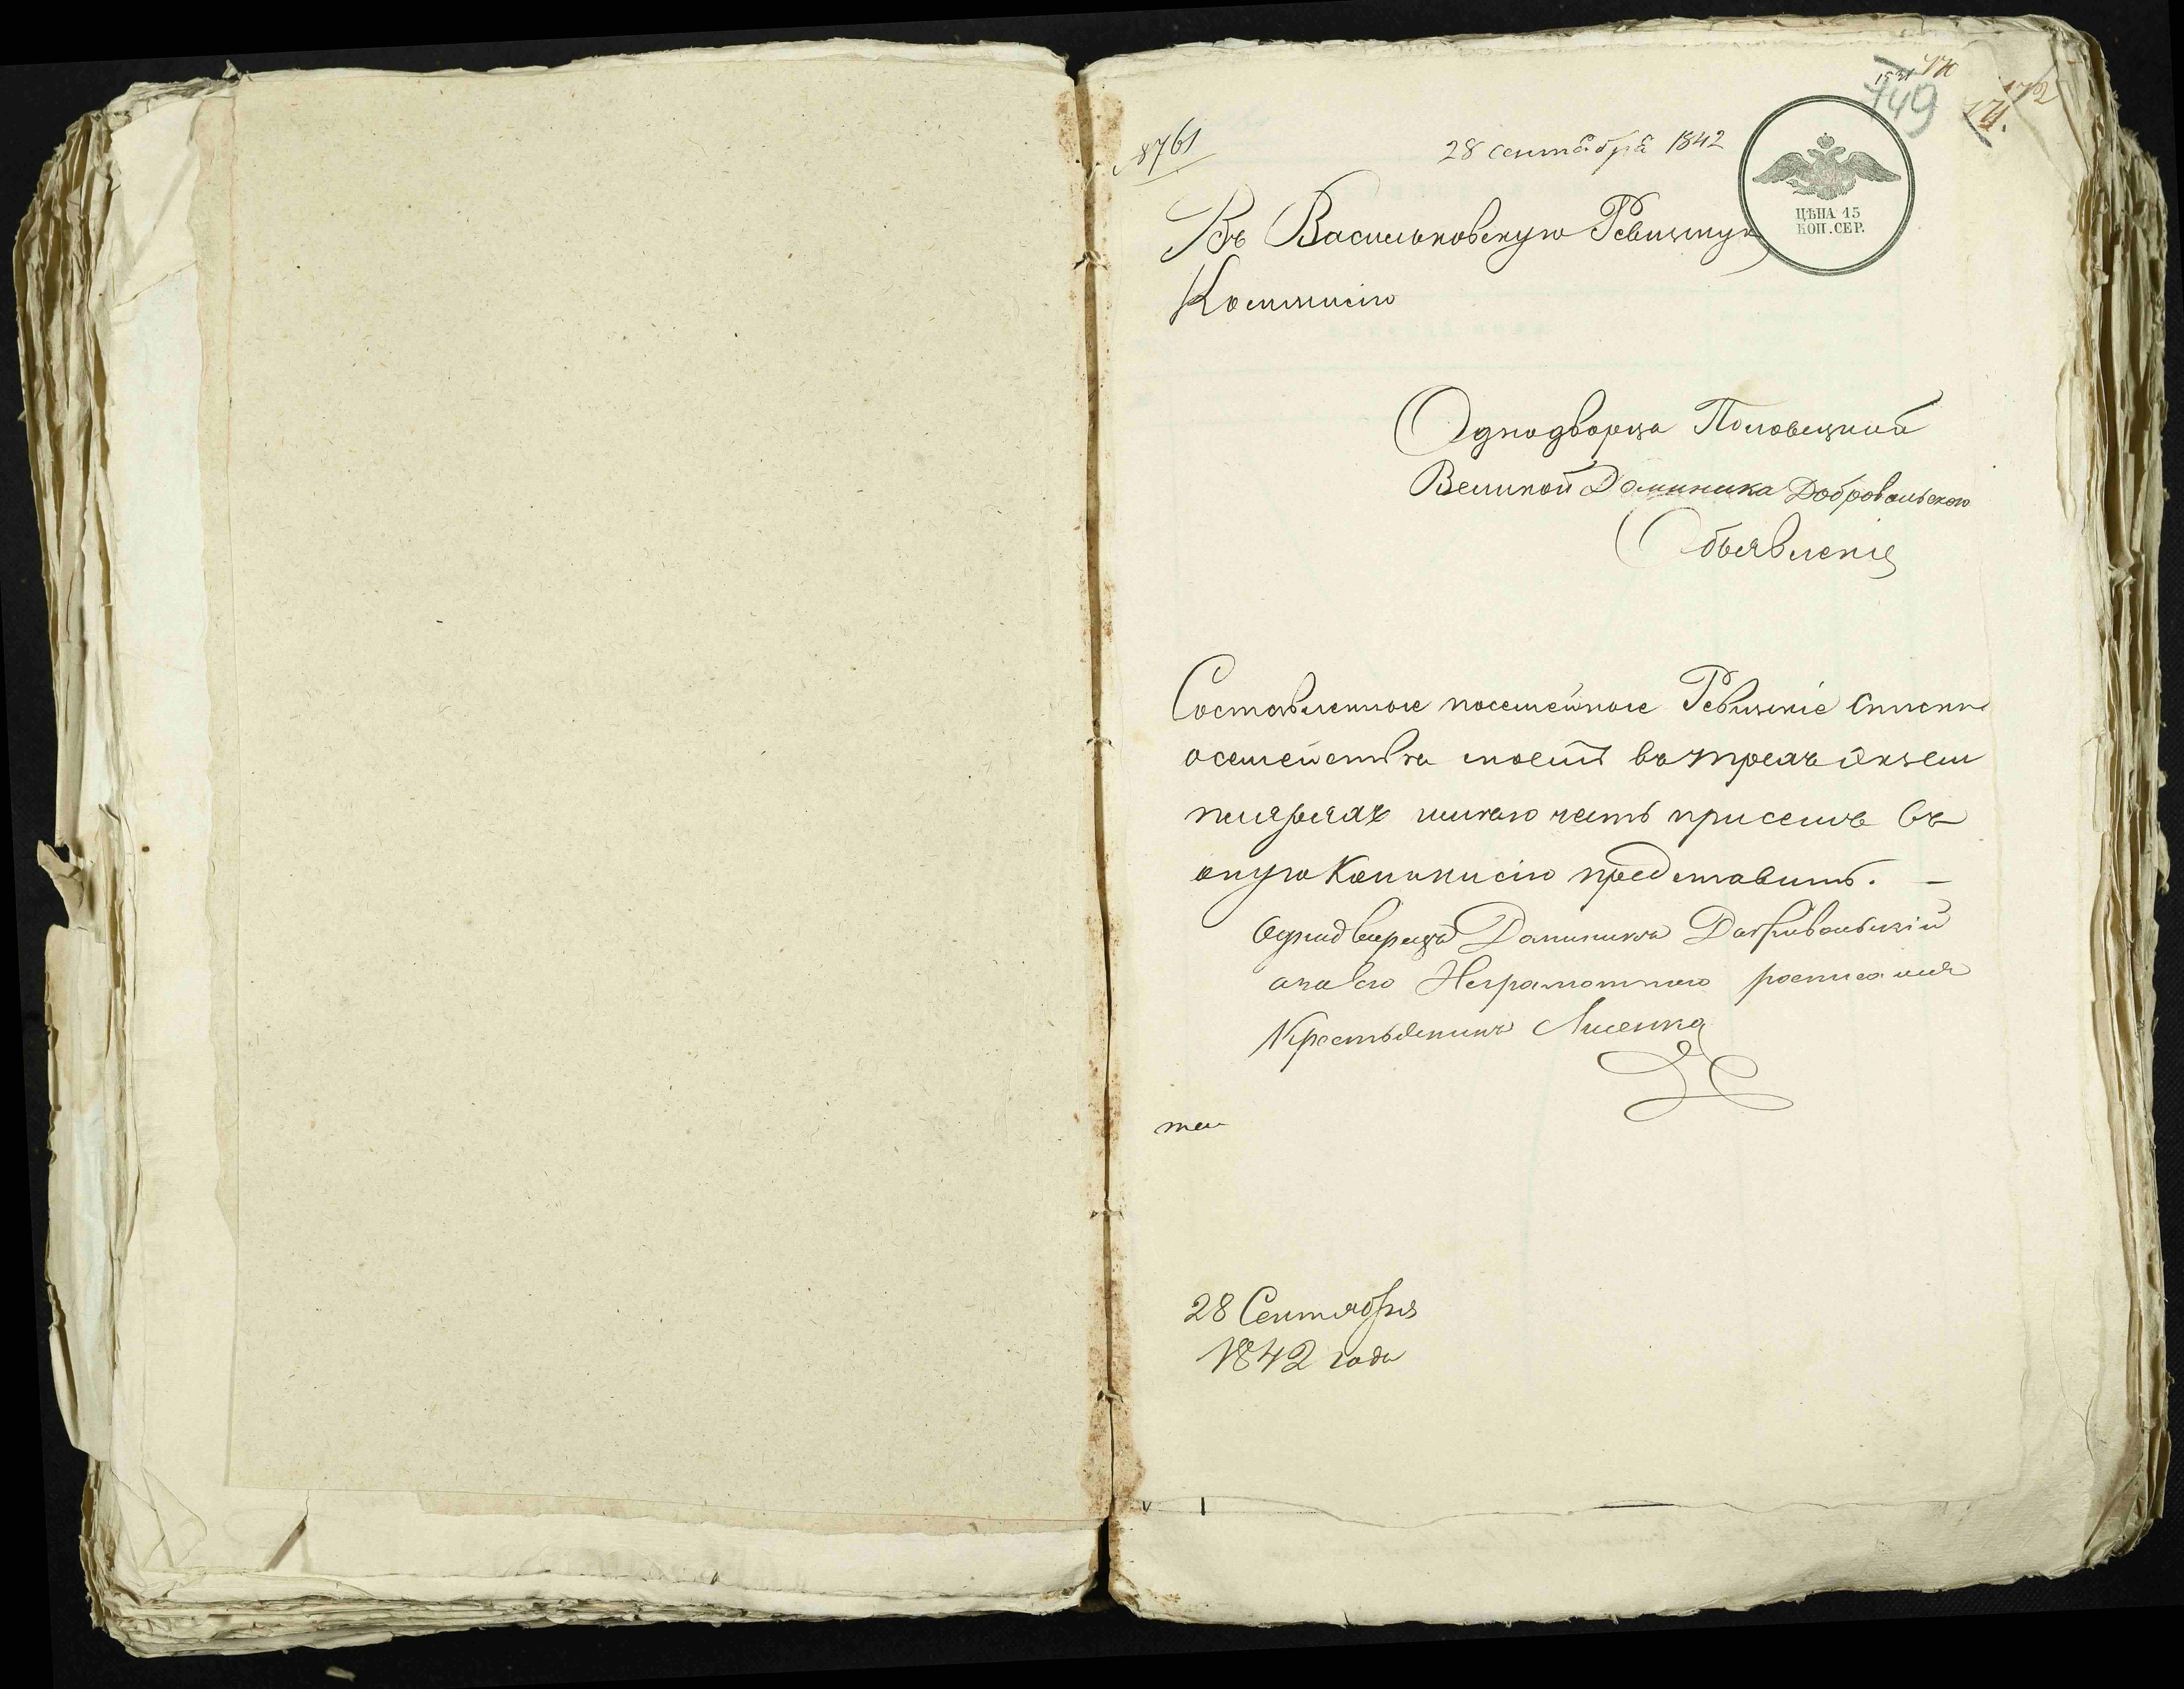 8761
28 сентября 1842
149
171.
172
ЦѢНА 15
КОП. СЕР.
Въ Васильковскую Ревизкую
Коммисію
Однодворца Половецкой
Великой Доминика Добровольского
Объявленіе
Составленные посемейные Ревизкіе списки
осемействѣ моемъ въ трехъ екзем
пляряхъ имѣю честь присемъ въ
оную Коммисію представить. —
Однодворецъ Доминикъ Добровольскій
а за его Неграмотного росписался
Крестьянинъ Лисенко
28 Сентября
1842 года